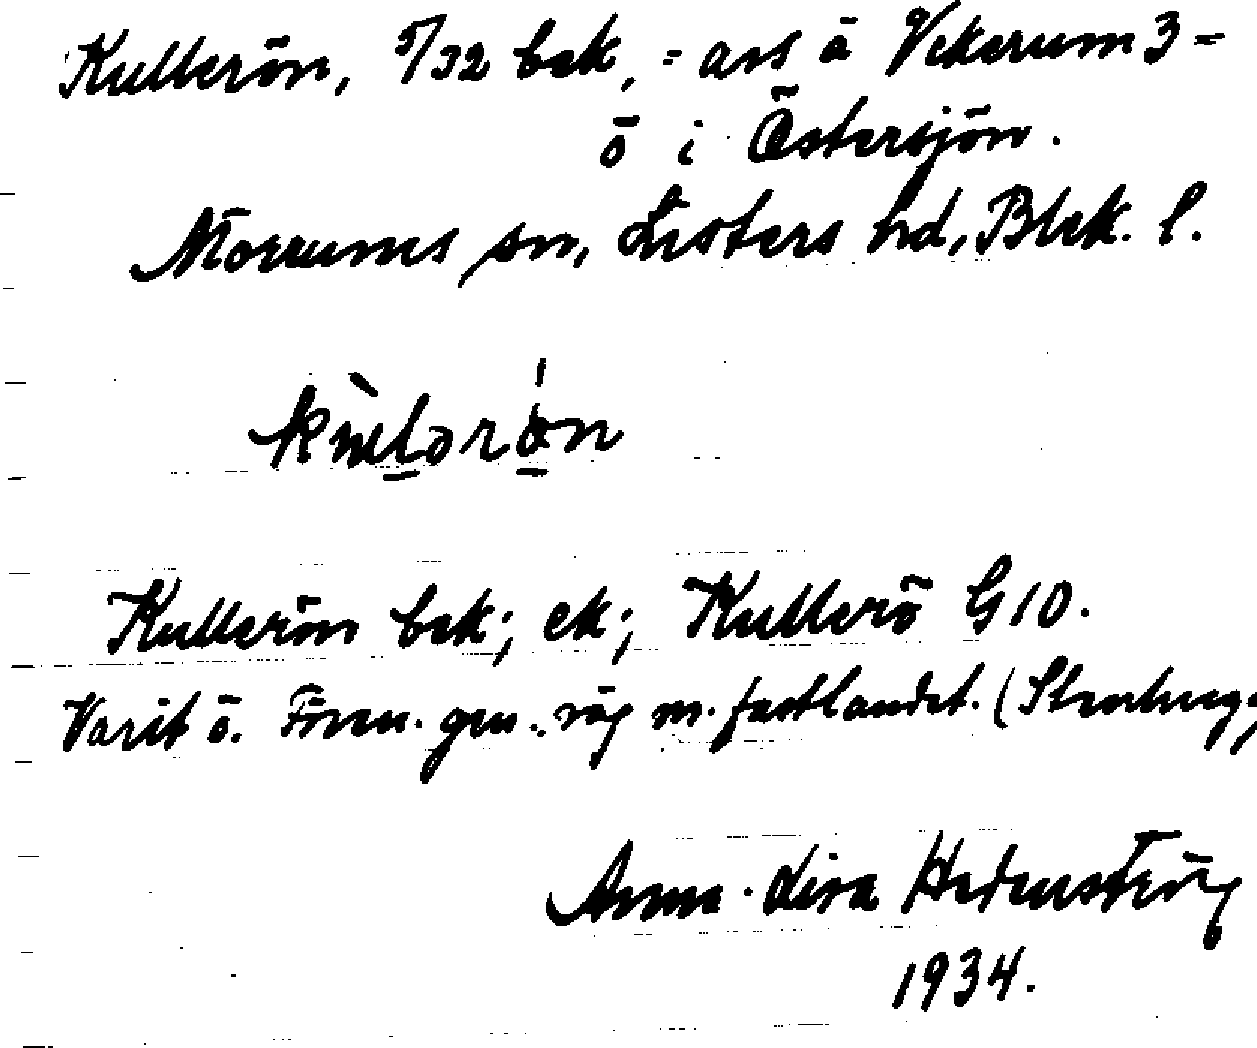 Kullerön, 5/32 bek, = avs å Vekerum 3 =
ö i Östersjön.
Mörrums sn, Listers hd, Blek. l.
Kullerön bek; ek; Kullerö G10.
Varit ö. Fören. gm. väg m. fastlandet. (Stenberg,
Anna-Lisa Hedenström
1934.